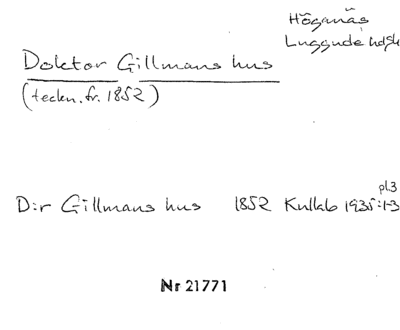 Höganäs
Luggude hdsk
Doktor Gillmans hus
(teckn. fr. 1852)
pl.3
D:r Gillmans hus 1852 Kullab 1935:1-3
Nr 21771